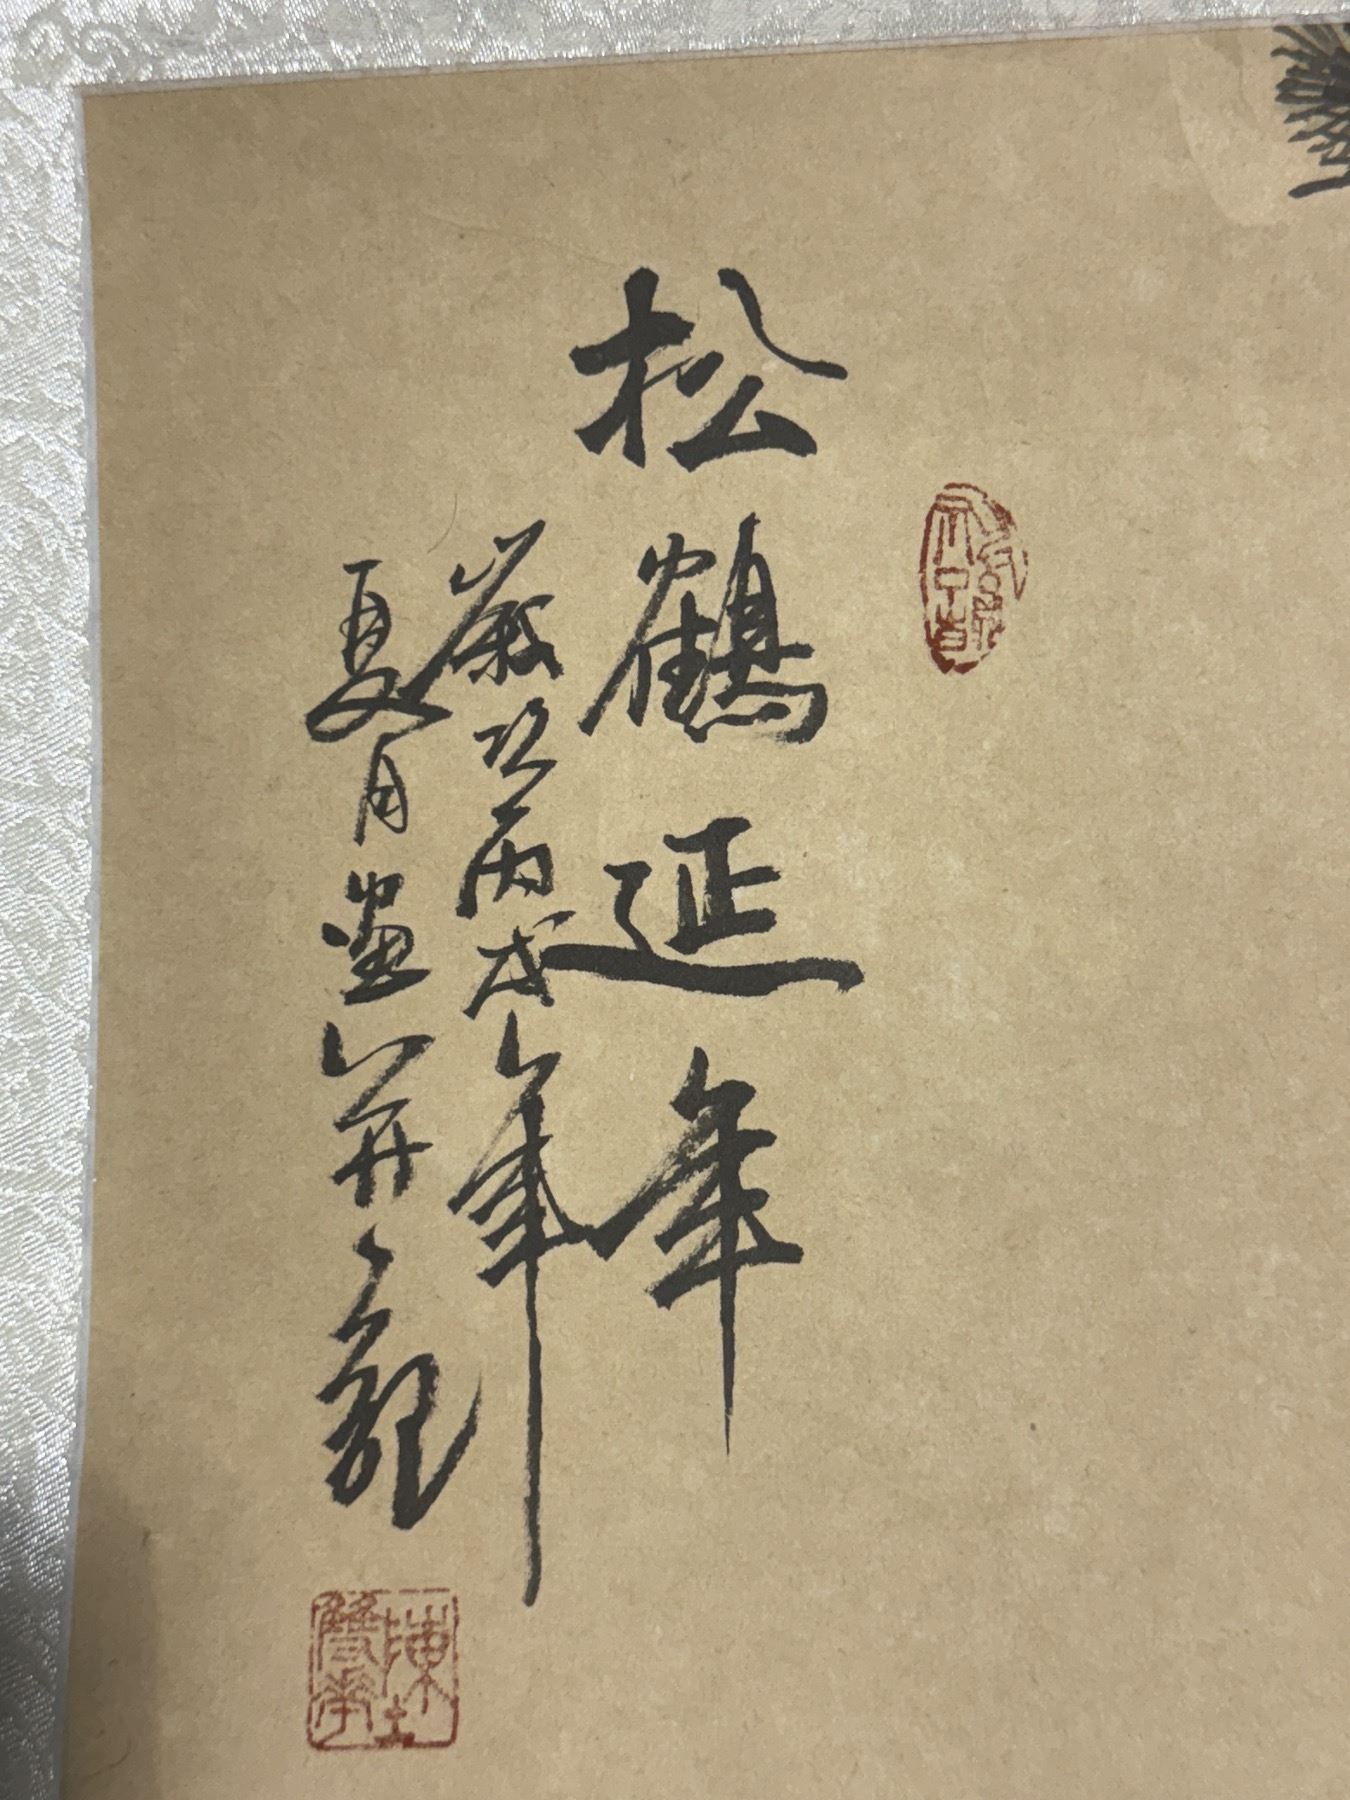 松鶴延年
歲次丙戌年
夏月畫並記